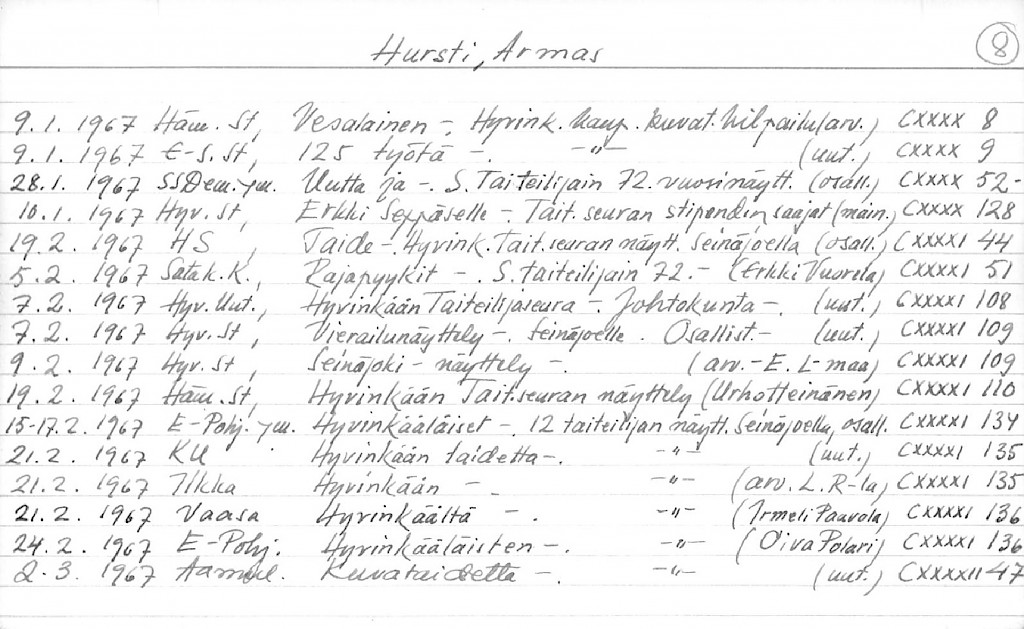 Hursti, Armas 8
9.1. 1967 Häm. St, Vesalainen -. Hyvink. kaup. kuvat. kilpailu (arv.) CXXXX 8
9.1. 1967 E-S. St, 125 työtä -. -"- (uut.) CXXXX 9
28.1. 1967 SSDem. ym. Uutta ja -. S. Taiteilijain 72. vuosinäytt. (osall.) CXXXX 52-
10.1. 1967 Hyv. St, Erkki Seppäselle -. Tait. seuran stipendin saajat (main.) CXXXX 128
19.2. 1967 HS, Taide -. Hyvink. Tait. seuran näytt. Seinäjoella (osall.) CXXXXI 44
5.2. 1967 Satak. K., Rajapyykit -. S. taiteilijain 72.- (Erkki Vuorela) CXXXXI 51
7.2. 1967 Hyv. Uut., Hyvinkään Taiteilijaseura -. Johtokunta -. (uut.) CXXXXI 108
7.2. 1967 Hyv. St, Vierailunäyttely -. Seinäjoelle. Osallist.- (uut.) CXXXXI 109
9.2. 1967 Hyv. St, Seinäjoki - näyttely -. (arv.- E. L-maa) CXXXXI 109
19.2. 1967 Häm. St, Hyvinkään Tait. seuran näyttely (Urho Heinänen) CXXXXI 110
15-17.2. 1967 E-Pohj. ym. Hyvinkääläiset -. 12 taiteilijan näytt. Seinäjoella, osall. CXXXXI 134
21.2. 1967 KU Hyvinkään taidetta -. -"- (uut.) CXXXXI 135
21.2. 1967 Ilkka Hyvinkään -. -"- (arv. L. R-la) CXXXXI 135
21.2. 1967 Vaasa Hyvinkäältä -. -"- (Irmeli Paavola) CXXXXI 136
24.2. 1967 E-Pohj. Hyvinkääläisten -. -"- (Oiva Polari) CXXXXI 136
2.3. 1967 Aamul. Kuvataidetta -. -"- (uut.) CXXXXII 47